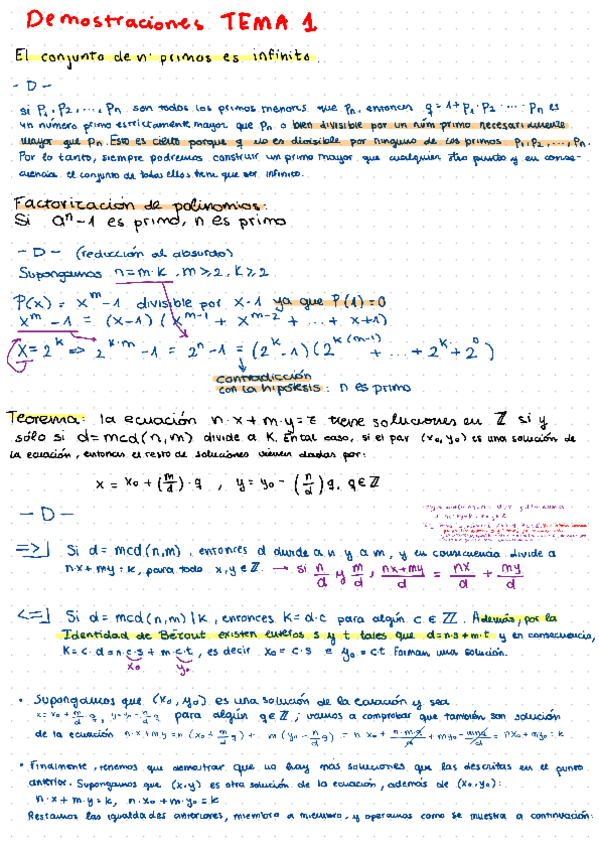 Demostraciones TEMA 1
El conjunto de nº primos es infinito.
- D -
Si P₁, P₂, ..., Pₙ son todos los primos menores que Pₙ, entonces q = 1 + P₁ · P₂ · ... · Pₙ es
un número primo estrictamente mayor que Pₙ o bien divisible por un núm primo necesariamente
mayor que Pₙ. Esto es cierto porque q no es divisible por ninguno de los primos P₁, P₂, ..., Pₙ.
Por lo tanto, siempre podremos construir un primo mayor que cualquier otro y en conse-
cuencia el conjunto de todos ellos tiene que ser infinito.
Factorización de polinomios:
Si aⁿ - 1 es primo, n es primo
- D - (reducción al absurdo)
Supongamos n = m · k, m ≥ 2, k ≥ 2
P(x) = x^m - 1 divisible por x - 1 ya que P(1) = 0
x^m - 1 = (x - 1)(x^(m-1) + x^(m-2) + ... + x + 1)
x = 2^k => 2^(k·m) - 1 = 2ⁿ - 1 = (2^k - 1)(2^(k(m-1)) + ... + 2^k + 2⁰)
contradicción
con la hipótesis: n es primo
Teorema: la ecuación n·x + m·y = tiene soluciones en ℤ si y
sólo si d = mcd(n,m) divide a K. En tal caso, si el par (x₀, y₀) es una solución de
la ecuación, entonces el resto de soluciones vienen dadas por:
x = x₀ + (m/d) · q , y = y₀ - (n/d) q, q ∈ ℤ
- D -
=>⌋ Si d = mcd(n,m), entonces d divide a n y a m, y en consecuencia divide a
n·x + my = k, para todo x, y ∈ ℤ. → si n/d y m/d, (nx + my)/d = nx/d + my/d
<=⌋ Si d = mcd(n,m) | k, entonces K = d · c para algún c ∈ ℤ. Además, por la
Identidad de Bézout existen enteros s y t tales que d = n·s + m·t y en consecuencia,
K = c · d = n·c·s + m·c·t, es decir x₀ = c · s e y₀ = ct forman una solución.
x₀ y₀
• Supongamos que (x₀, y₀) es una solución de la ecuación y sea
x = x₀ + m/d q, y = y₀ - n/d q para algún q ∈ ℤ; vamos a comprobar que también son solución
de la ecuación n·x + m·y = n (x₀ + m/d q) + m (y₀ - n/d q) = n x₀ + n·m·q/d + my₀ - mnq/d = nx₀ + my₀ = k.
• Finalmente, tenemos que demostrar que no hay más soluciones que las descritas en el punto
anterior. Supongamos que (x, y) es otra solución de la ecuación, además de (x₀, y₀):
n·x + m·y = k, n·x₀ + m·y₀ = k
Restamos las igualdades anteriores, miembro a miembro, y operamos como se muestra a continuación: